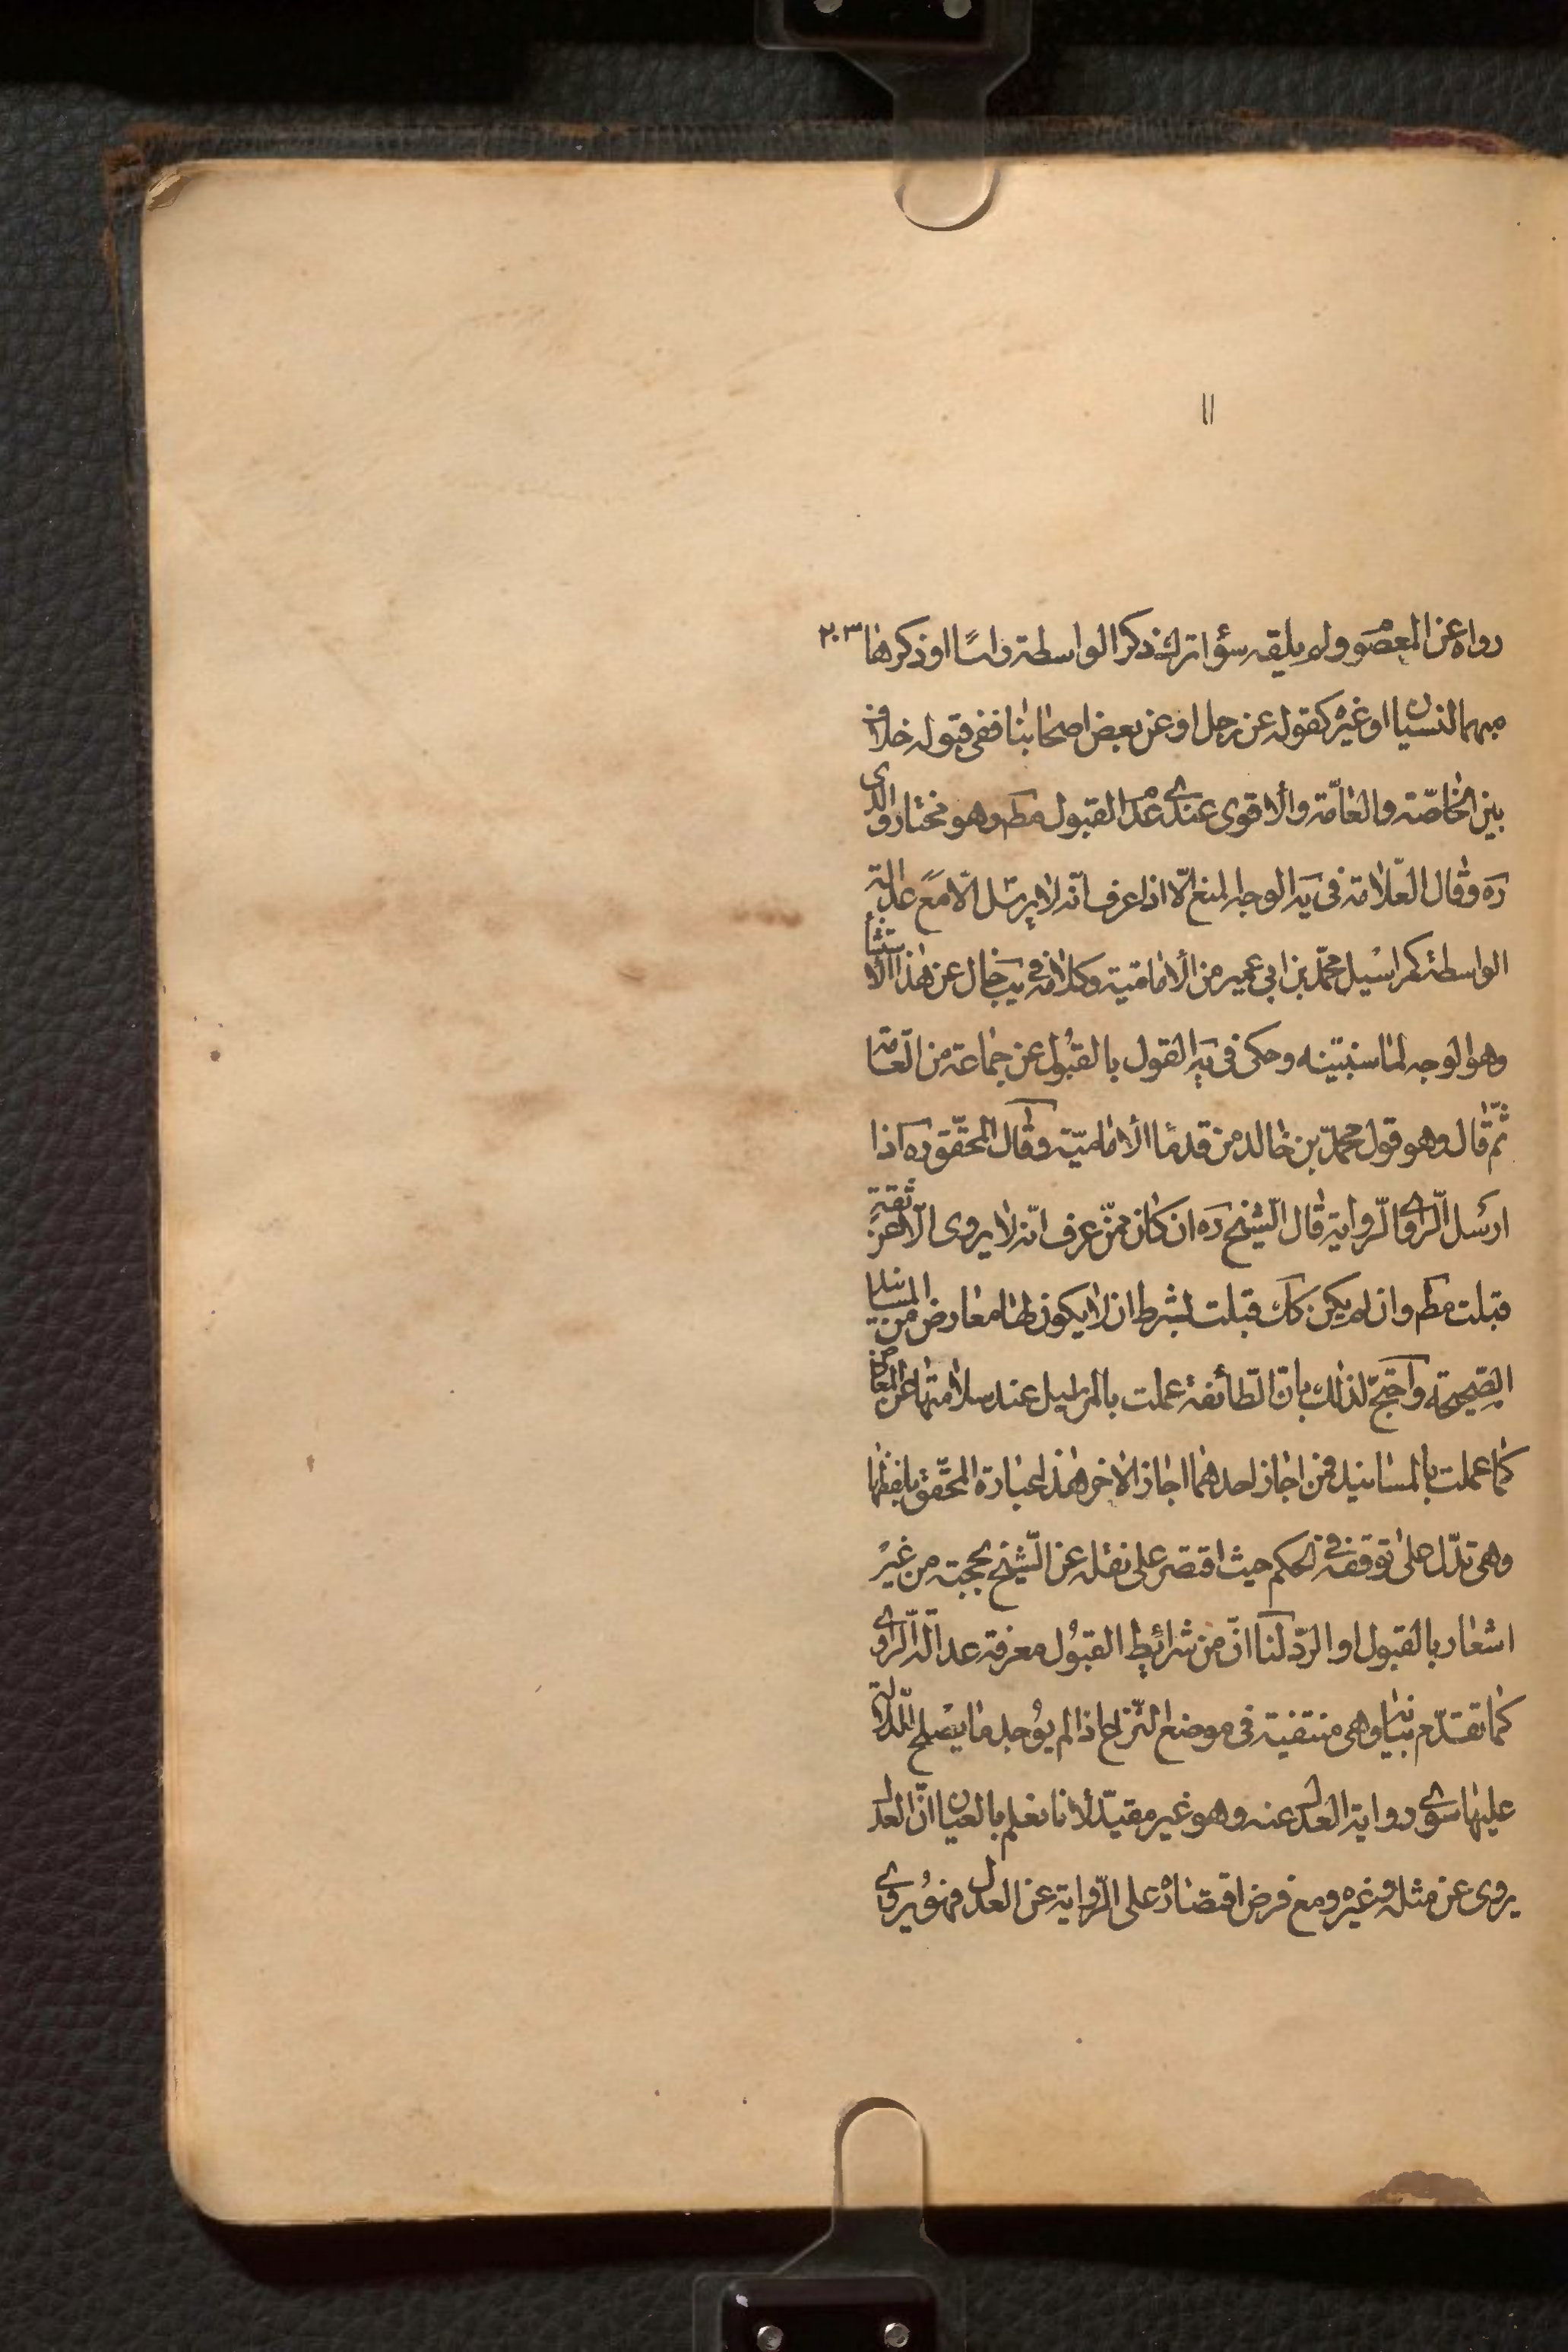 اا
رواه عن المعصوم ولم يلقه سؤا ترك ذكر الواسطة راسًا او ذكرها ٢٠٣
مبهما لنسيان او غيره كقوله عن رجل او عن بعض اصحابنا ففى قبوله خلاف
بين الخاصّة والعامّة والأقوى عندى عدم القبول مطم وهو مختار والدى
ره وقال العلّامة فى يه الوجه المنع الّا اذا عرف انّه لا يرسل الّا مع عدالة
الواسطة كمراسيل محمّد بن ابي عمير من الأماميّة وكلامه فى يب خال عن هذا الاستثنا
وهو الوجه لما سنبيّنه وحكى فى يه القول بالقبول عن جماعة من العامّة
ثمّ قال وهو قول محمّد بن خالد من قدما الأماميّة وقال المحقّق ره اذا
ارسل الرّاوى الرّواية قال الشّيخ ره ان كان ممّن عرف انّه لا يروى الّا عن ثقة
قبلت مطم وان لم يكن كك قبلت بشرط ان لا يكون لها معارض من المسانيد
الصّحيحة واحتجّ لذلك بانّ الطّائفة عملت بالمراسيل عند سلامتها عن المعارض
كما عملت بالمسانيد فمن اجاز احدهما اجاز الاخر هذه عبارة المحقّق بلفظها
وهى تدلّ على توقفه فى الحكم حيث اقتصر على نقله عن الشّيخ بحجته من غير
اشعار بالقبول او الردّ لنا انّ من شرائط القبول معرفة عدالة الرّاوى
كما تقدّم بيانه وهى منتفية فى موضع النّزاع اذ لم يوجد ما يصلح للدّلالة
عليها سوى رواية العدل عنه وهو غير مقيد لأنا نعلم بالعيان انّ العدل
يروى عن مثله وغيره ومع فرض اقتصاره على الرّواية عن العدل فهو يروى